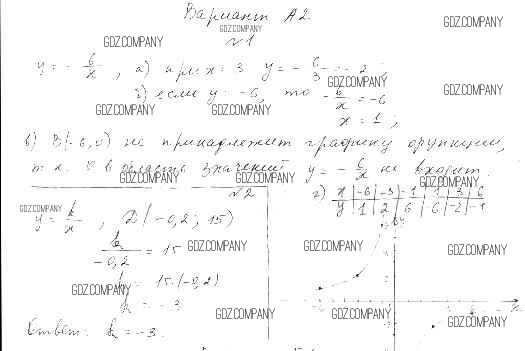 Вариант А2.
GDZ.COMPANY
GDZ.COMPANY
№1
GDZ.COMPANY
y = - 6/x , а) при x = 3 y = - 6/3 = - 2 ;
GDZ.COMPANY
GDZ.COMPANY
б) если y = -6, то - 6/x = -6
GDZ.COMPANY
GDZ.COMPANY
x = 1 ;
GDZ.COMPANY
в) B(-6,0) не принадлежит графику функции,
т.к. 0 в область значений y = - 6/x не входит.
GDZ.COMPANY
GDZ.COMPANY
GDZ.COMPANY
г) x | -6 | -3 | -1 | 1 | 3 | 6
y | 1 | 2 | 6 | 6 | -2 | -1
№2
GDZ.COMPANY
y = k/x , D(-0,2; 15)
k/-0,2 = 15
GDZ.COMPANY
GDZ.COMPANY
k = 15·(-0,2)
GDZ.COMPANY
k = -3
GDZ.COMPANY
GDZ.COMPANY
GDZ.COMPANY
Ответ: k = -3.